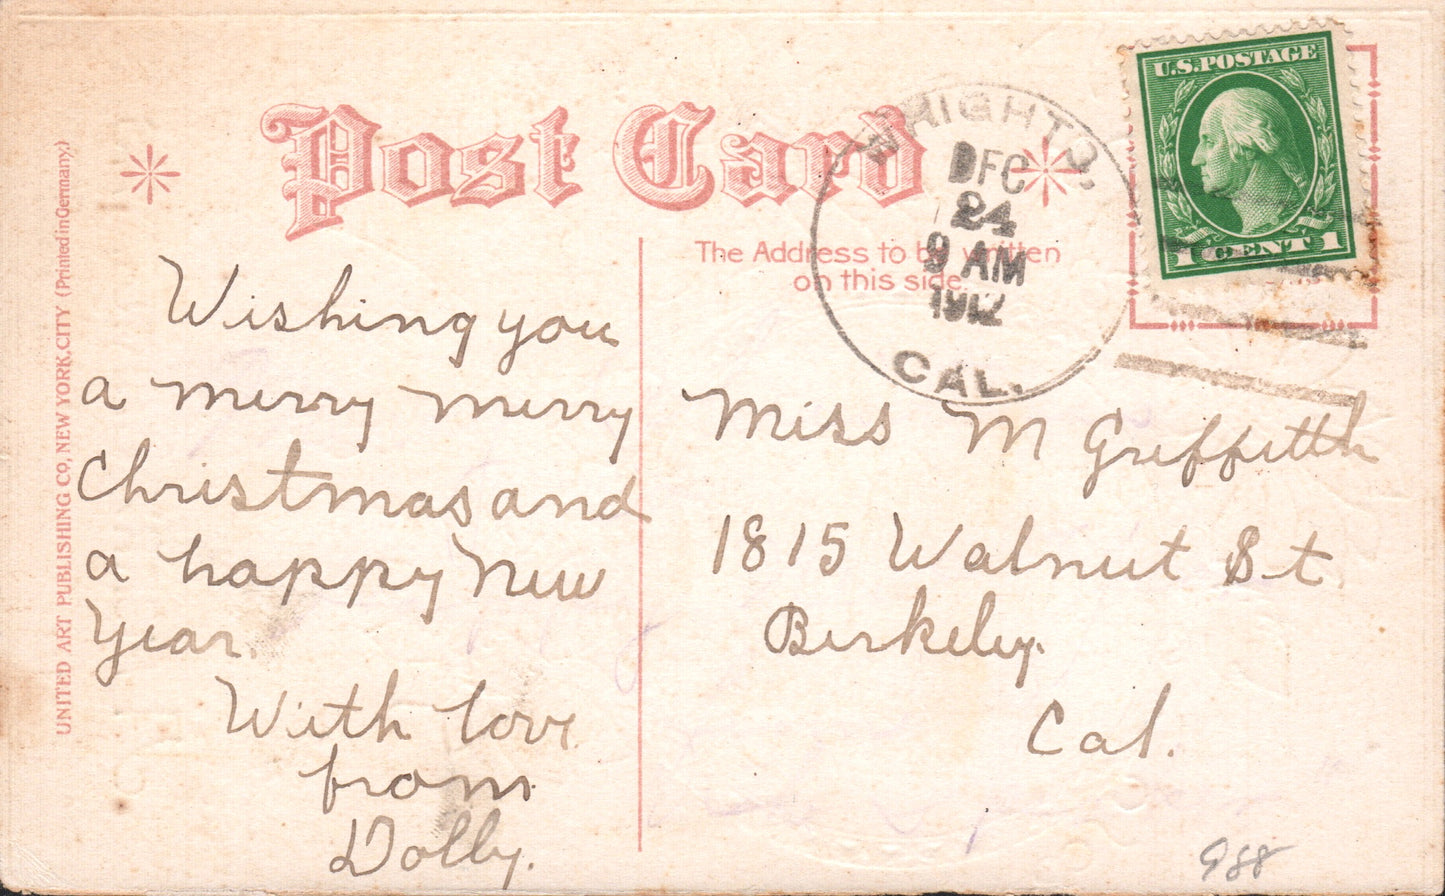 Post Card
U.S.POSTAGE
1 CENT 1
WRIGHTS.
DEC
24
9 AM
1912
CAL.
The Address to be written
on this side.
UNITED ART PUBLISHING CO, NEW YORK, CITY (Printed in Germany.)
Wishing you
a merry merry
Christmas and
a happy New
Year.
With love
from
Dolly.
Miss M Griffitth
1815 Walnut St
Berkeley.
Cal.
988